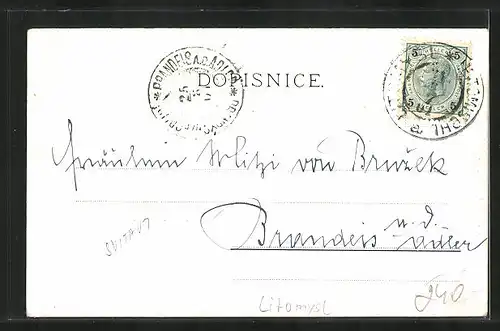 DOPISNICE.
BRANDEIS A.D. ADLER
5 5
Fräulein Mitzi von Bružek
Brandeis a. d. Adler
Litomysl
240